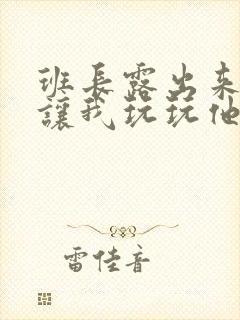 班長露出來
讓我玩玩他
雷佳音